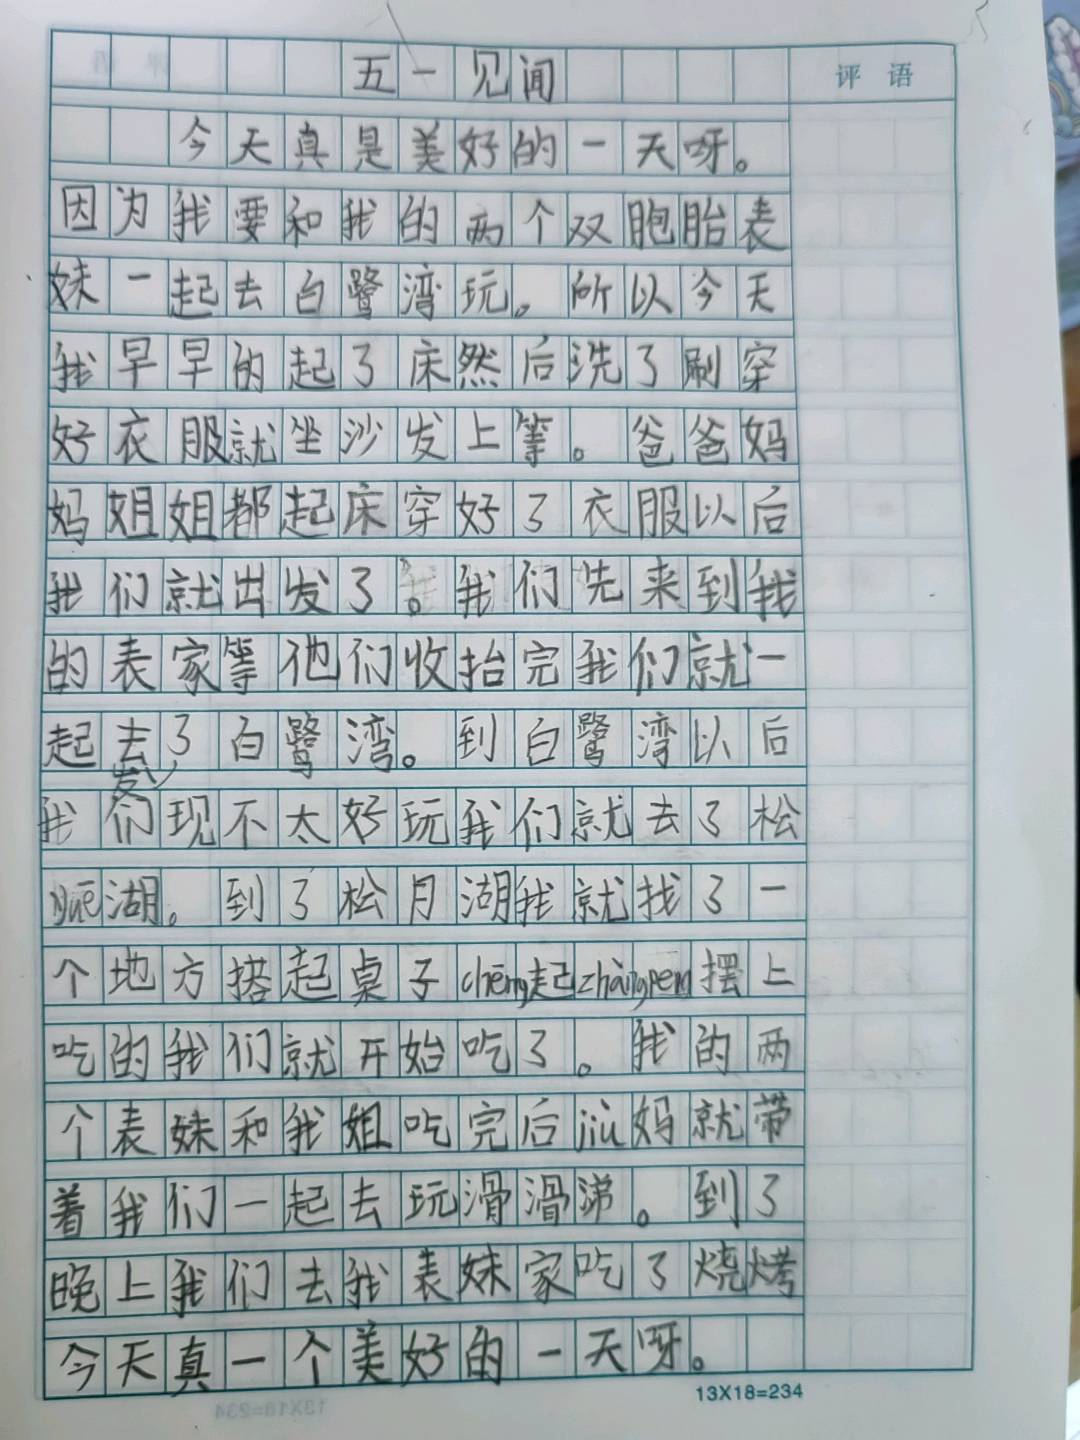 五一见闻
评语
今天真是美好的一天呀。
因为我要和我的两个双胞胎表
妹一起去白鹭湾玩。所以今天
我早早的起了床然后洗了刷穿
好衣服就坐沙发上等。爸爸妈
妈姐姐都起床穿好了衣服以后
我们就出发了。我们先来到我
的表家等他们收抬完我们就一
起去了白鹭湾。到白鹭湾以后
我们发现不太好玩我们就去了松
yuè湖。到了松月湖我就找了一
个地方搭起桌子chēng起zhàngpeng摆上
吃的我们就开始吃了。我的两
个表妹和我姐吃完后jiù妈就带
着我们一起去玩滑滑涕。到了
晚上我们去我表妹家吃了烧烤
今天真一个美好的一天呀。
13X18=234